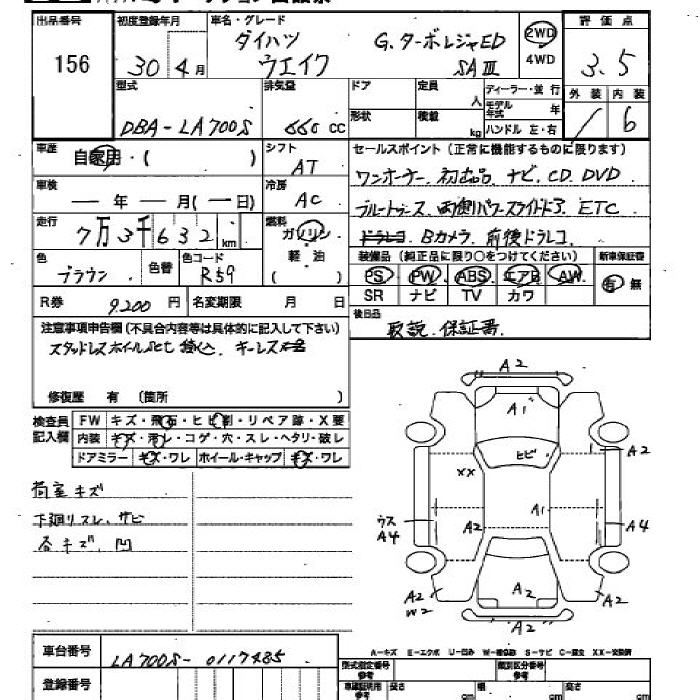 出品番号 初度登録年月 車名・グレード 評価点
156 30年4月 ダイハツ G.ターボレジャED 2WD 3.5
ウエイク SAⅢ 4WD
型式 排気量 ドア 定員 人 ディーラー・並行 外装 内装
形状 積載 kg モデル年式 年 6
DBA-LA700S 660CC ハンドル 左・右
車歴 自家用・( ) シフト AT セールスポイント(正常に機能するものに限ります)
ワンオーナー.初出品.ナビ.CD.DVD
車検 ―年―月(―日) 冷房 AC
ブルートゥース.両側パワースライドドア.ETC
走行 7万3千632km 燃料 ガソリン
ドラレコ.Bカメラ.前後ドラレコ.
軽油
( )
色 ブラウン 色替 色コード R59
装備品(純正品に限り○をつけてください) 新車保証書
PS PW ABS エアB AW 有 無
SR ナビ TV カワ
R券 9,200円 名変期限 月 日
後日品 取説.保証書.
注意事項申告欄(不具合内容等は具体的に記入して下さい)
スタッドレスホイールSet
修復歴 有 (箇所 )
検査員記入欄
FW キズ・飛石・ヒビ割・リペア跡・X要
内装 キズ・汚レ・コゲ・穴・スレ・ヘタリ・破レ
ドアミラー キズ・ワレ ホイール・キャップ キズ・ワレ
荷室キズ
下廻リスレ.サビ
各キズ 凹
A2
A1
ヒビ
A2
XX
A1
ウス
A4
A2
A4
A2
A2
W2
A2
A2
A-キズ E-エクボ U-凹み W-補修跡 S-サビ C-腐食 XX-交換済
車台番号 LA700S-0117485
登録番号
型式指定番号 参考 類別区分番号 参考
車庫証明用 参考 長さ cm 幅 cm 高さ cm